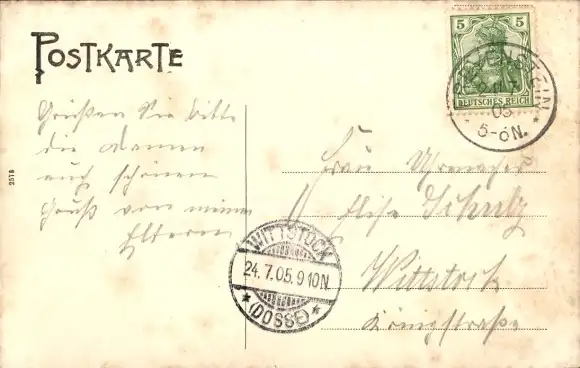 POSTKARTE
Grüßen Sie bitte
die Damen
auch schönen
Gruß von meinen
Eltern
2518
5 5
DEUTSCHES REICH
05
5-6N.
Frau Uhrmacher
Elise Schulz
Wittstock
Königstraße
WITTSTOCK
24.7.05.9 10N.
(DOSSE)